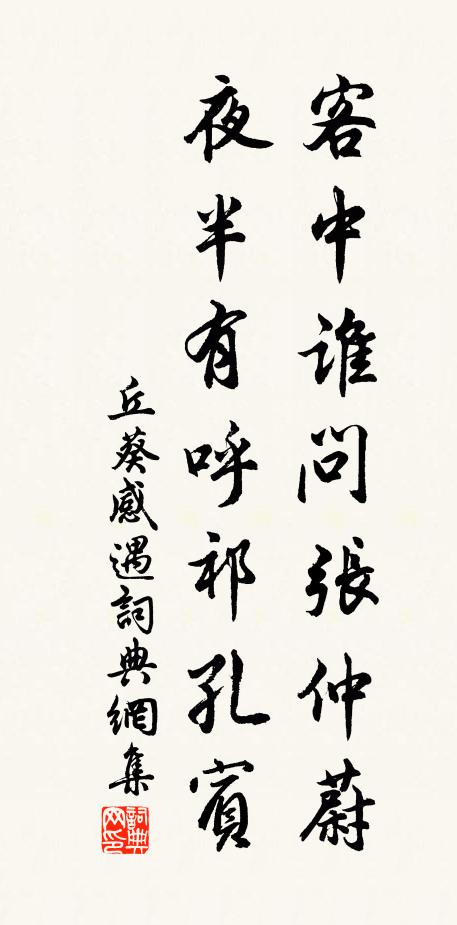 客中誰問張仲蔚
夜半有呼祁孔賓
丘葵感遇詞典網集
詞典网印